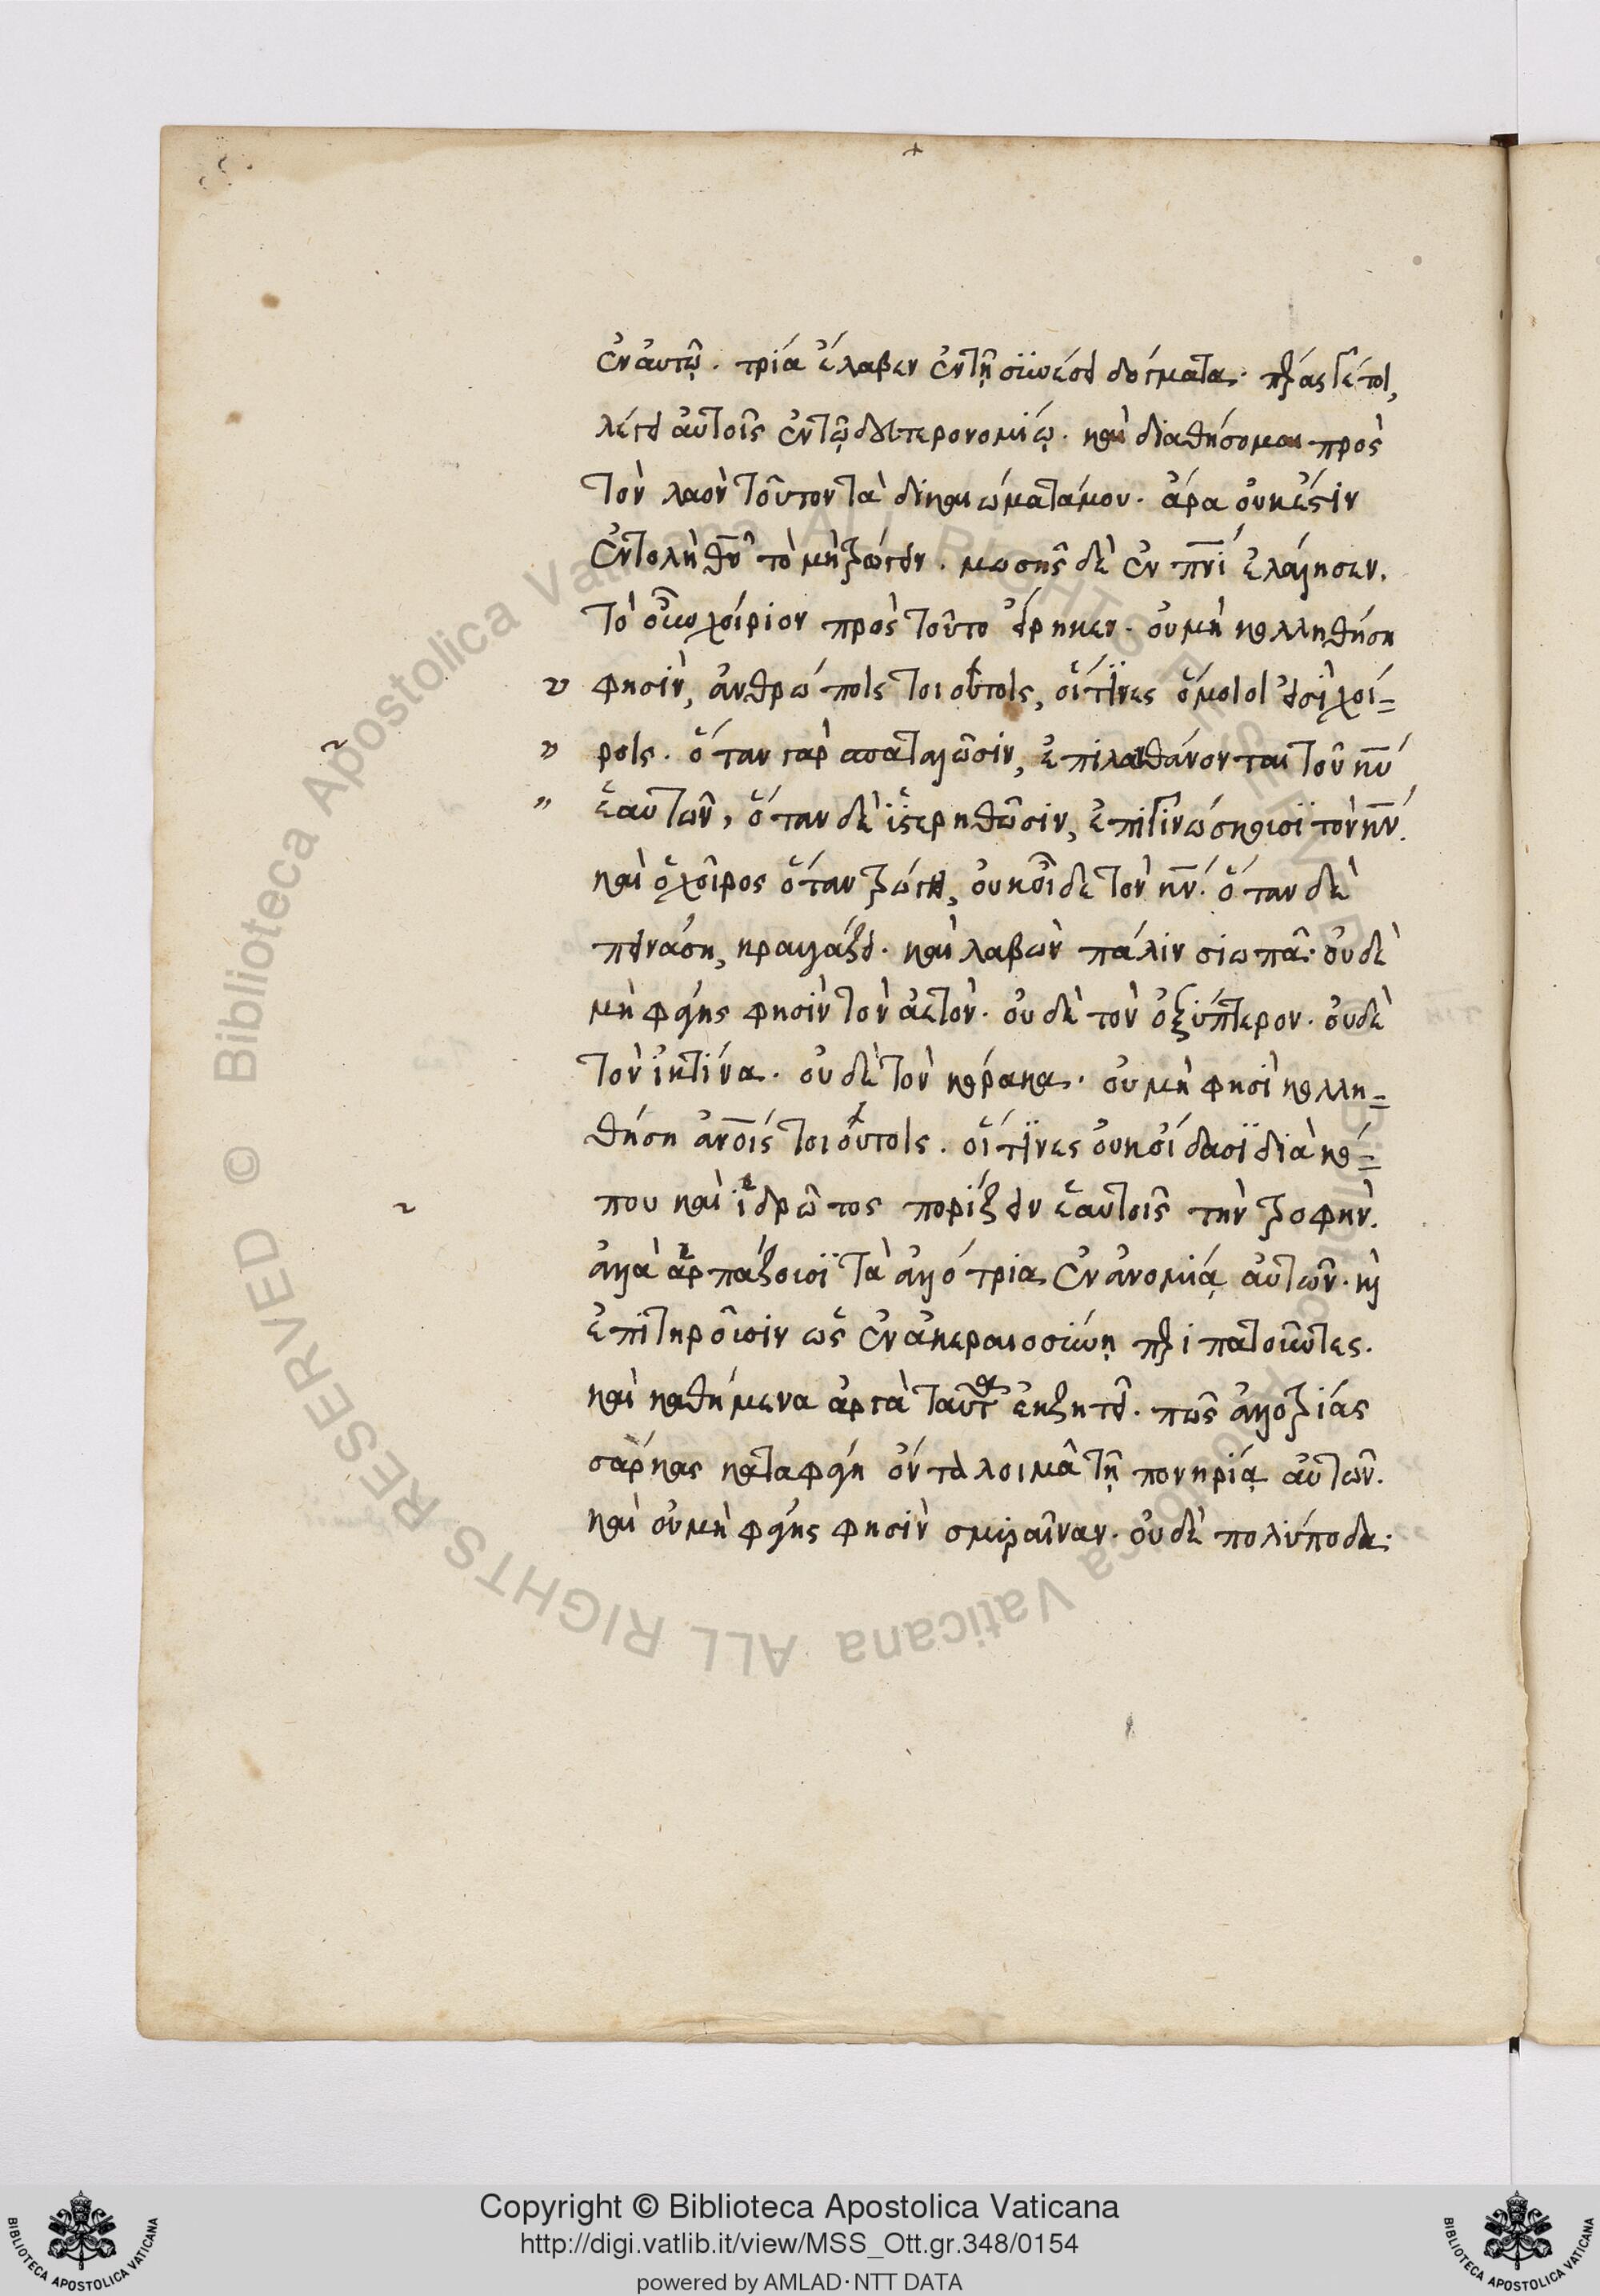 ἐν αὐτῷ. τρία ἔλαβεν ἐν τῇ συνέσει δόγματα. πέρας γέ τοι,
λέγει αὐτοῖς ἐν τῷ δευτερονομίῳ. καὶ διαθήσομαι πρὸς
τὸν λαὸν τοῦτον τὰ δικαιώματά μου. ἄρα οὐκ ἔστιν
ἐντολὴ θυ τὸ μὴ τρώγειν. μωσῆς δὲ ἐν πνι ἐλάλησεν.
τὸ οὖν χοίριον πρὸς τοῦτο εἴρηκεν. οὐ μὴ κολληθήση
φησὶν, ἀνθρώποις τοιούτοις, οἵτινες ὅμοιοι εἰσὶ χοί=
ροις. ὅταν γὰρ σπαταλῶσιν, ἐπιλανθάνονται τοῦ κυ
ἑαυτῶν, ὅταν δὲ ὑστερηθῶσιν, ἐπιγινώσκουσι τὸν κν.
καὶ ὁ χοῖρος ὅταν τρώγει, οὐκ οἶδε τὸν κν. ὅταν δὲ
πεινάση, κραυγάζει. καὶ λαβὼν πάλιν σιωπᾶ. οὐδὲ
μὴ φάγης φησὶν τὸν ἀετὸν. οὐδὲ τὸν ὀξύπτερον. οὐδὲ
τὸν ἰκτίνα. οὐδὲ τὸν κόρακα. οὐ μὴ φησὶ κολλη=
θήση ἀνοις τοιούτοις. οἵτινες οὐκ οἴδασι διὰ κό=
που καὶ ἱδρῶτος πορίζειν ἑαυτοῖς τὴν τροφὴν.
ἀλλὰ ἁρπάζουσι τὰ ἀλλότρια ἐν ἀνομίᾳ αὐτῶν. κὶ
ἐπιτηροῦσιν ὡς ἐν ἀκεραιοσύνῃ περιπατοῦντες.
καὶ καθήμενα ἀργὰ ταῦτα ἐκζητεῖ. πῶς ἀλλοτρίας
σάρκας καταφάγη ὄντα λοιμὰ τῇ πονηρίᾳ αὐτῶν.
καὶ οὐ μὴ φάγης φησὶν σμύραιναν. οὐδὲ πολύποδα.
© Biblioteca Apostolica Vaticana ALL RIGHTS RESERVED
© Biblioteca Apostolica Vaticana ALL RIGHTS RESERVED
Copyright © Biblioteca Apostolica Vaticana
http://digi.vatlib.it/view/MSS_Ott.gr.348/0154
powered by AMLAD·NTT DATA
BIBLIOTECA APOSTOLICA VATICANA
BIBLIOTECA APOSTOLICA VATICANA